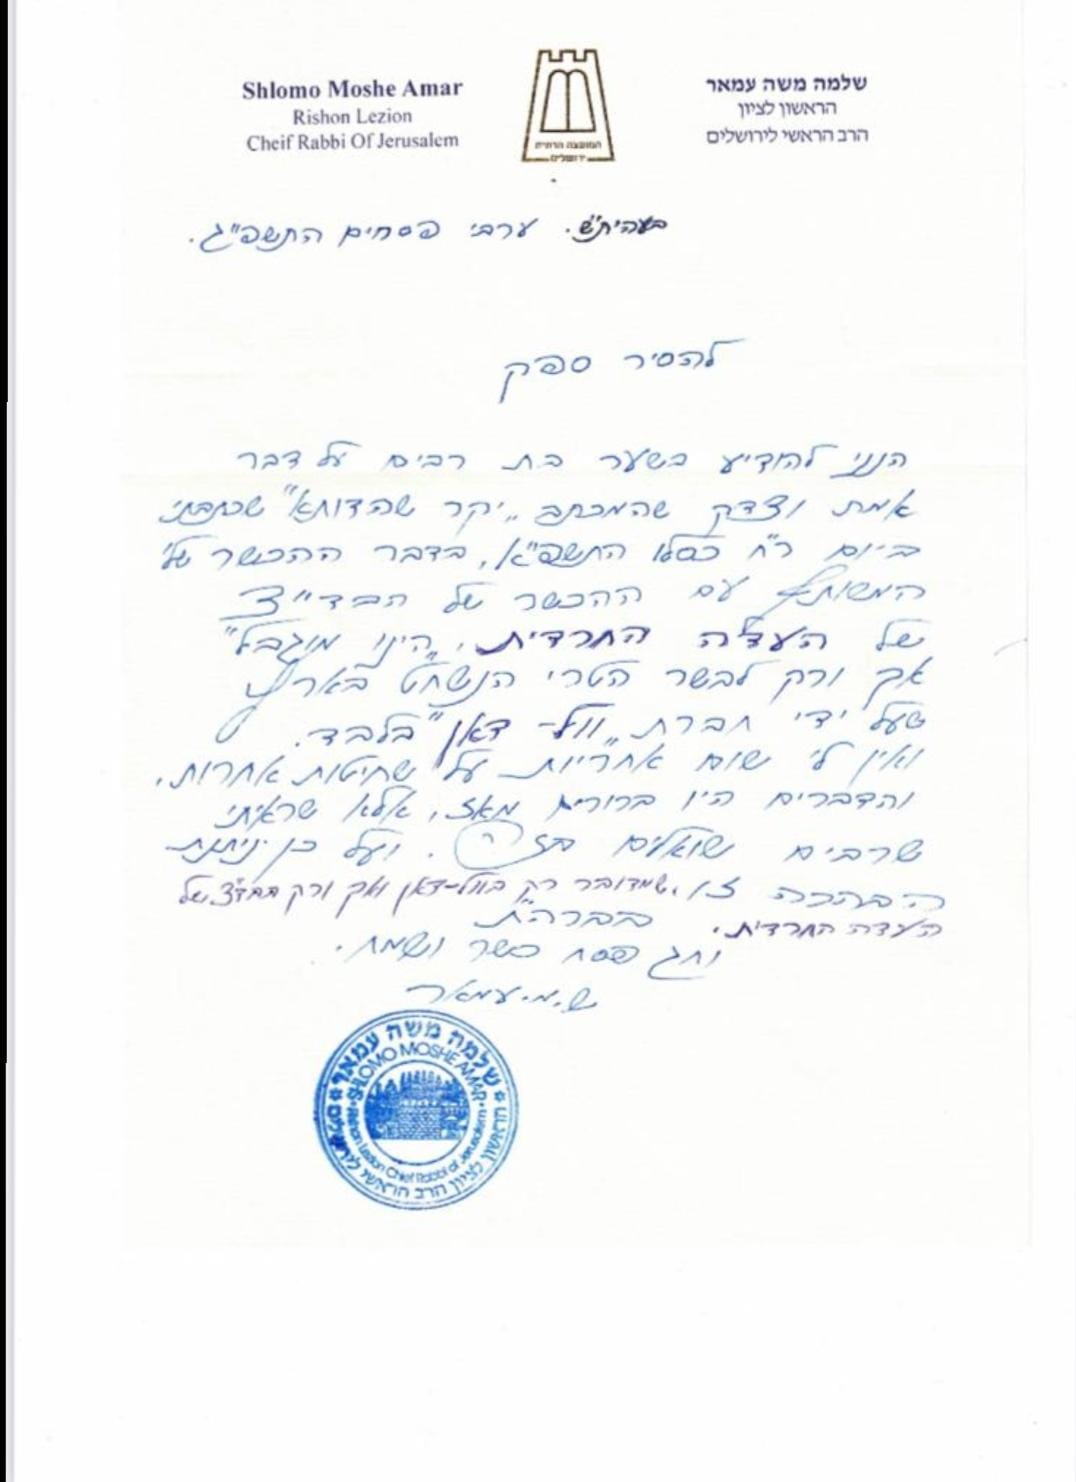 Shlomo Moshe Amar
Rishon Lezion
Cheif Rabbi Of Jerusalem
המועצה הדתית
ירושלים
שלמה משה עמאר
הראשון לציון
הרב הראשי לירושלים
בעהית"ש. ערבי פסחים התשפ"ג.
להסיר ספק
הנני להודיע בשער בת רבים על דבר
אמת וצדק שהמכתב "יקר שהדותא" שכתבתי
ביום ר"ח כסלו התשפ"א, בדבר ההכשר שלי
המשותף עם ההכשר של הבד"ץ
של העדה החרדית, "הינו מוגבל"
אך ורק לבשר הטרי הנשחט בארץ
שעל ידי חברת "וול-דאן" בלבד.
ואין לי שום אחריות על שחיטות אחרות,
והדברים היו ברורים מאז, אלא שראיתי
שרבים שואלים בזה. ועל כן ניתנת
הבהרה זו, שמדובר רק בוול-דאן ואך ורק בבד"צ של
העדה החרדית.
בברה"ת
וחג פסח כשר ושמח.
ש.מ. עמאר
שלמה משה עמאר
SHLOMO MOSHE AMAR
Rishon Lezion Chief Rabbi of Jerusalem
הראשון לציון הרב הראשי לירושלים